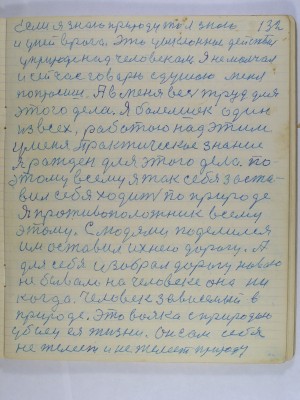 если я знаю природу то я знаю 132
и у ней врага. Это
у природе над человеком. Я не молчал
и сейчас говорю с душою меня
попросили. А в меня весь труд для
этого дела. Я один
из всех, работаю над этим
у меня практическое знание
я рожден для этого дела. По
этому всему я так себя заста-
вил себя ходить по природе
Я противоположник всему
этому. С людями поделился
им оставил ихнею дорогу. А
для себя избрал дорогу новою
не бывала на человеке она ни
когда. Человек зависимый в
природе. Это война с природою
убийца ея жизни. Он сам себя
не жалеит и не жалеит природу